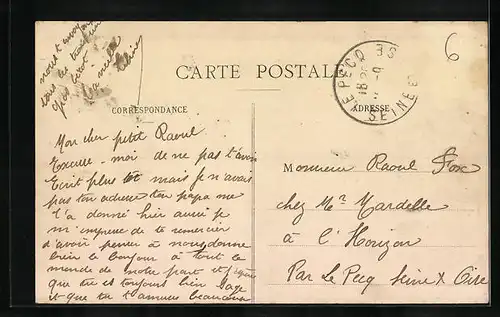 nous t'
tous les
gros
CARTE POSTALE
LE PECQ
SEINE
6
CORRESPONDANCE
ADRESSE
Mon cher petit Raoul
Excuse-moi de ne pas t'avoir
Ecrit plus tôt mais je n'avais
pas ton adresse ton papa me
l'a donné hier aussi je
m'empresse de te remercier
d'avoir penser à nous donne
bien le bonjour à tout le
monde de notre part et j'espère
que tu es toujours bien sage
et que tu t'amuse beaucoup
Monsieur Raoul
chez Mr Mardelle
à l'Horizon
Par Le Pecq Seine & Oise